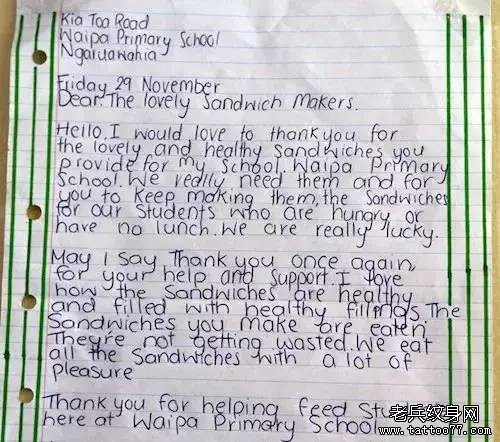 Kia Toa Road
Waipa Primary School
Ngaruawahia
Friday 29 November
Dear. The lovely Sandwich Makers.
Hello. I would love to thank you for
the lovely and healthy Sandwiches you
provide for my School. Waipa Primary
School. We really need them and for
you to keep making them, the Sandwiches
for our Students who are hungry or
have no lunch. We are really lucky.
May I Say Thank you once again,
for your help and Support. I love
how the Sandwiches are healthy
and filled with healthy fillings The
Sandwiches you make are eaten
They're not getting wasted. We eat
all the Sandwiches with a lot of
pleasure
Thank you for helping feed
here at Waipa Primary School
老兵纹身网
www.tattoo77.com